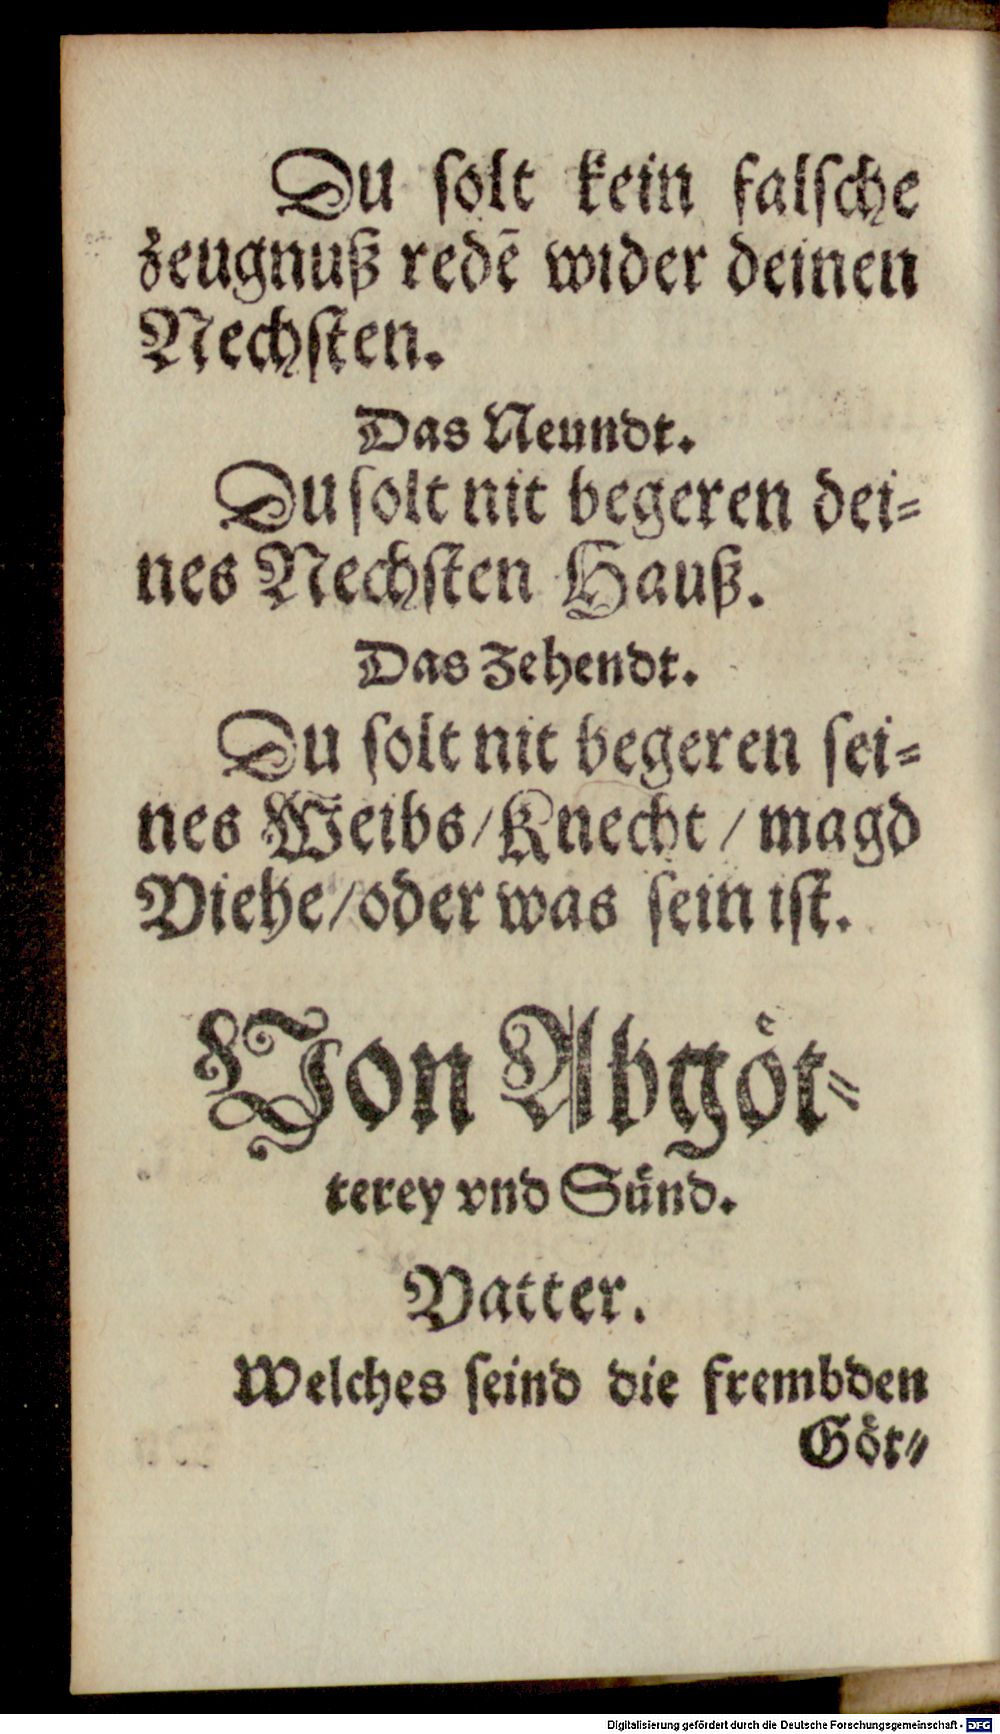 Du solt kein falsche
zeugnuß redē wider deinen
Nechsten.
Das Neundt.
Du solt nit begeren dei-
nes Nechsten Hauß.
Das Zehendt.
Du solt nit begeren sei-
nes Weibs/Knecht / magd
Viehe/oder was sein ist.
Von Abgöt-
terey vnd Sünd.
Vatter.
Welches seind die frembden
Göt-
Digitalisierung gefördert durch die Deutsche Forschungsgemeinschaft - DFG